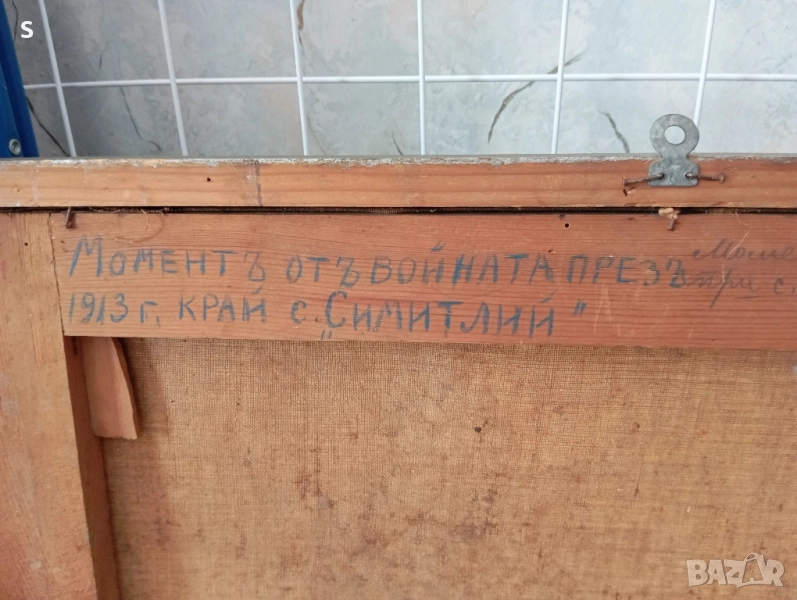 S
МОМЕНТЪ ОТЪ ВОЙНАТА ПРЕЗЪ
1913 г. КРАЙ с. „СИМИТЛИЙ"
Моме
при с.
BAZAR